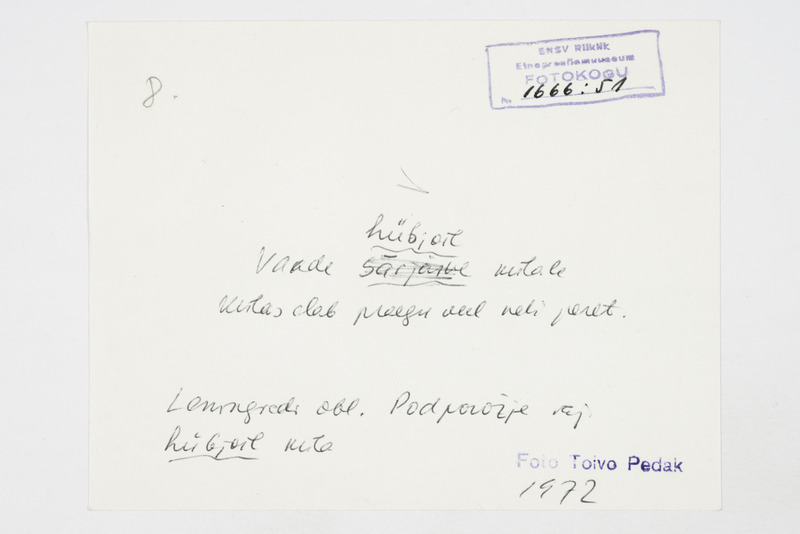 8.
ENSV Riiklik
Etnograafiamuuseum
FOTOKOGU
№ 1666:51
hübjoil
Vaade Särjärve külale
Külas elab praegu veel neli peret.
Leningradi obl. Podporožje raj.
hübjoil küla
Foto Toivo Pedak
1972